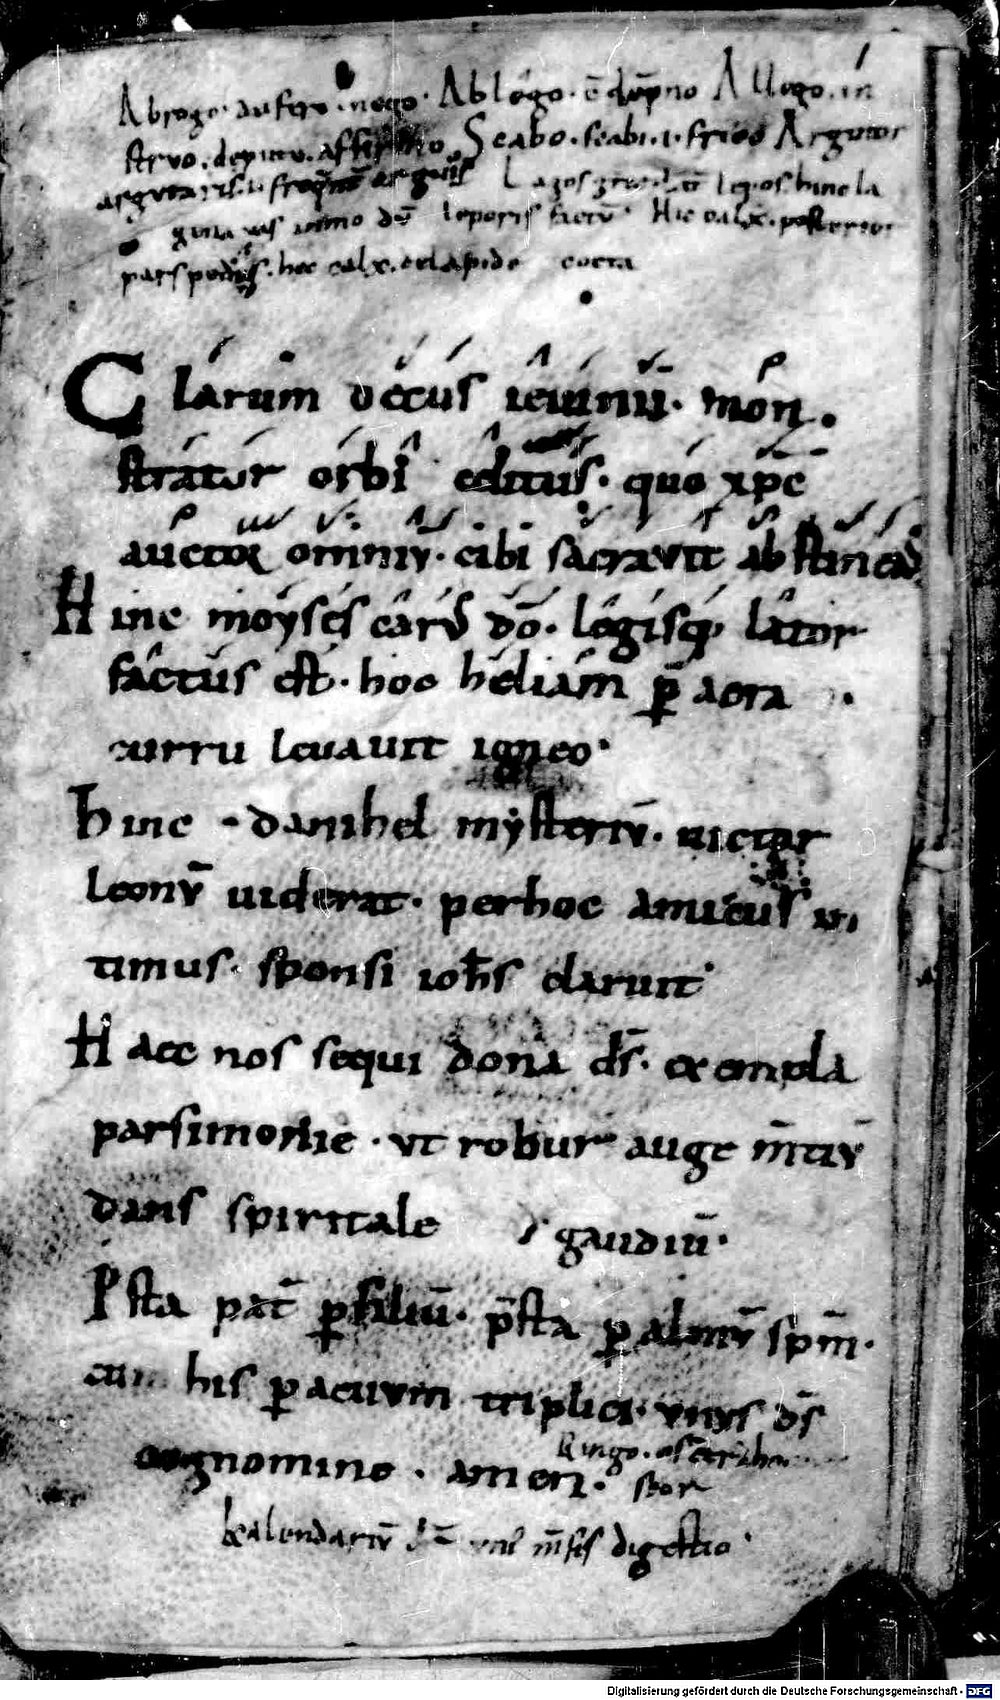 Abrogo. aufero. nego. Ablego. ē Allego. in
seruo. deputo. affirmo Scabo. scabi. i. frico Argutor
argutaris. i. Lagos lepos hinc la
dr̄ leporis Hic calx. posterior
pars pedis. hec calx. de lapide cocta
Clarum decus ieiunii. mon.
stratur orbi celitus. quo xp̄c
auctor omniū. cibi sacrauit abstinens
Hinc moyses carus dō. legisq; lator
factus est. hoc heliam p aera
curru leuauit igneo.
Hinc danihel mysteriū. uictor
leonū uiderat. per hoc amicus in
timus. sponsi ioh̄s claruit.
Haec nos sequi dona ds̄. exempla
parsimonie. ut robur auge m̄tiū
dans spiritale gaudiū.
Psta pat̄ p filiū. p̄sta p almū sp̄m.
cum his p aeuum triplici. unus ds̄
cognomine. amen.
Ringo.
kalendariū m̄sis digestio
Digitalisierung gefördert durch die Deutsche Forschungsgemeinschaft - DFG